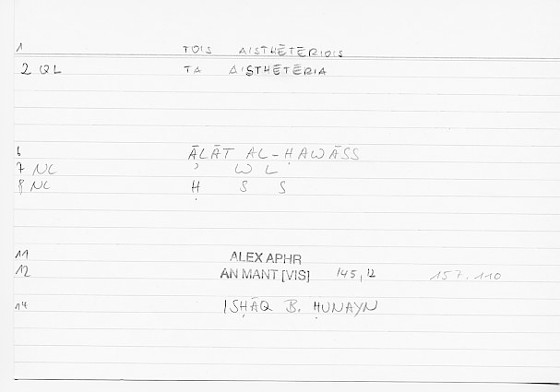 1 TOIS AISTHĒTĒRIOIS
2 QL TA AISTHĒTĒRIA
6 ĀLĀT AL-ḤAWĀSS
7 NC ʾ W L
8 NC Ḥ S S
11 ALEX APHR
12 AN MANT [VIS] 145,12 157.110
14 ISḤĀQ B. ḤUNAYN